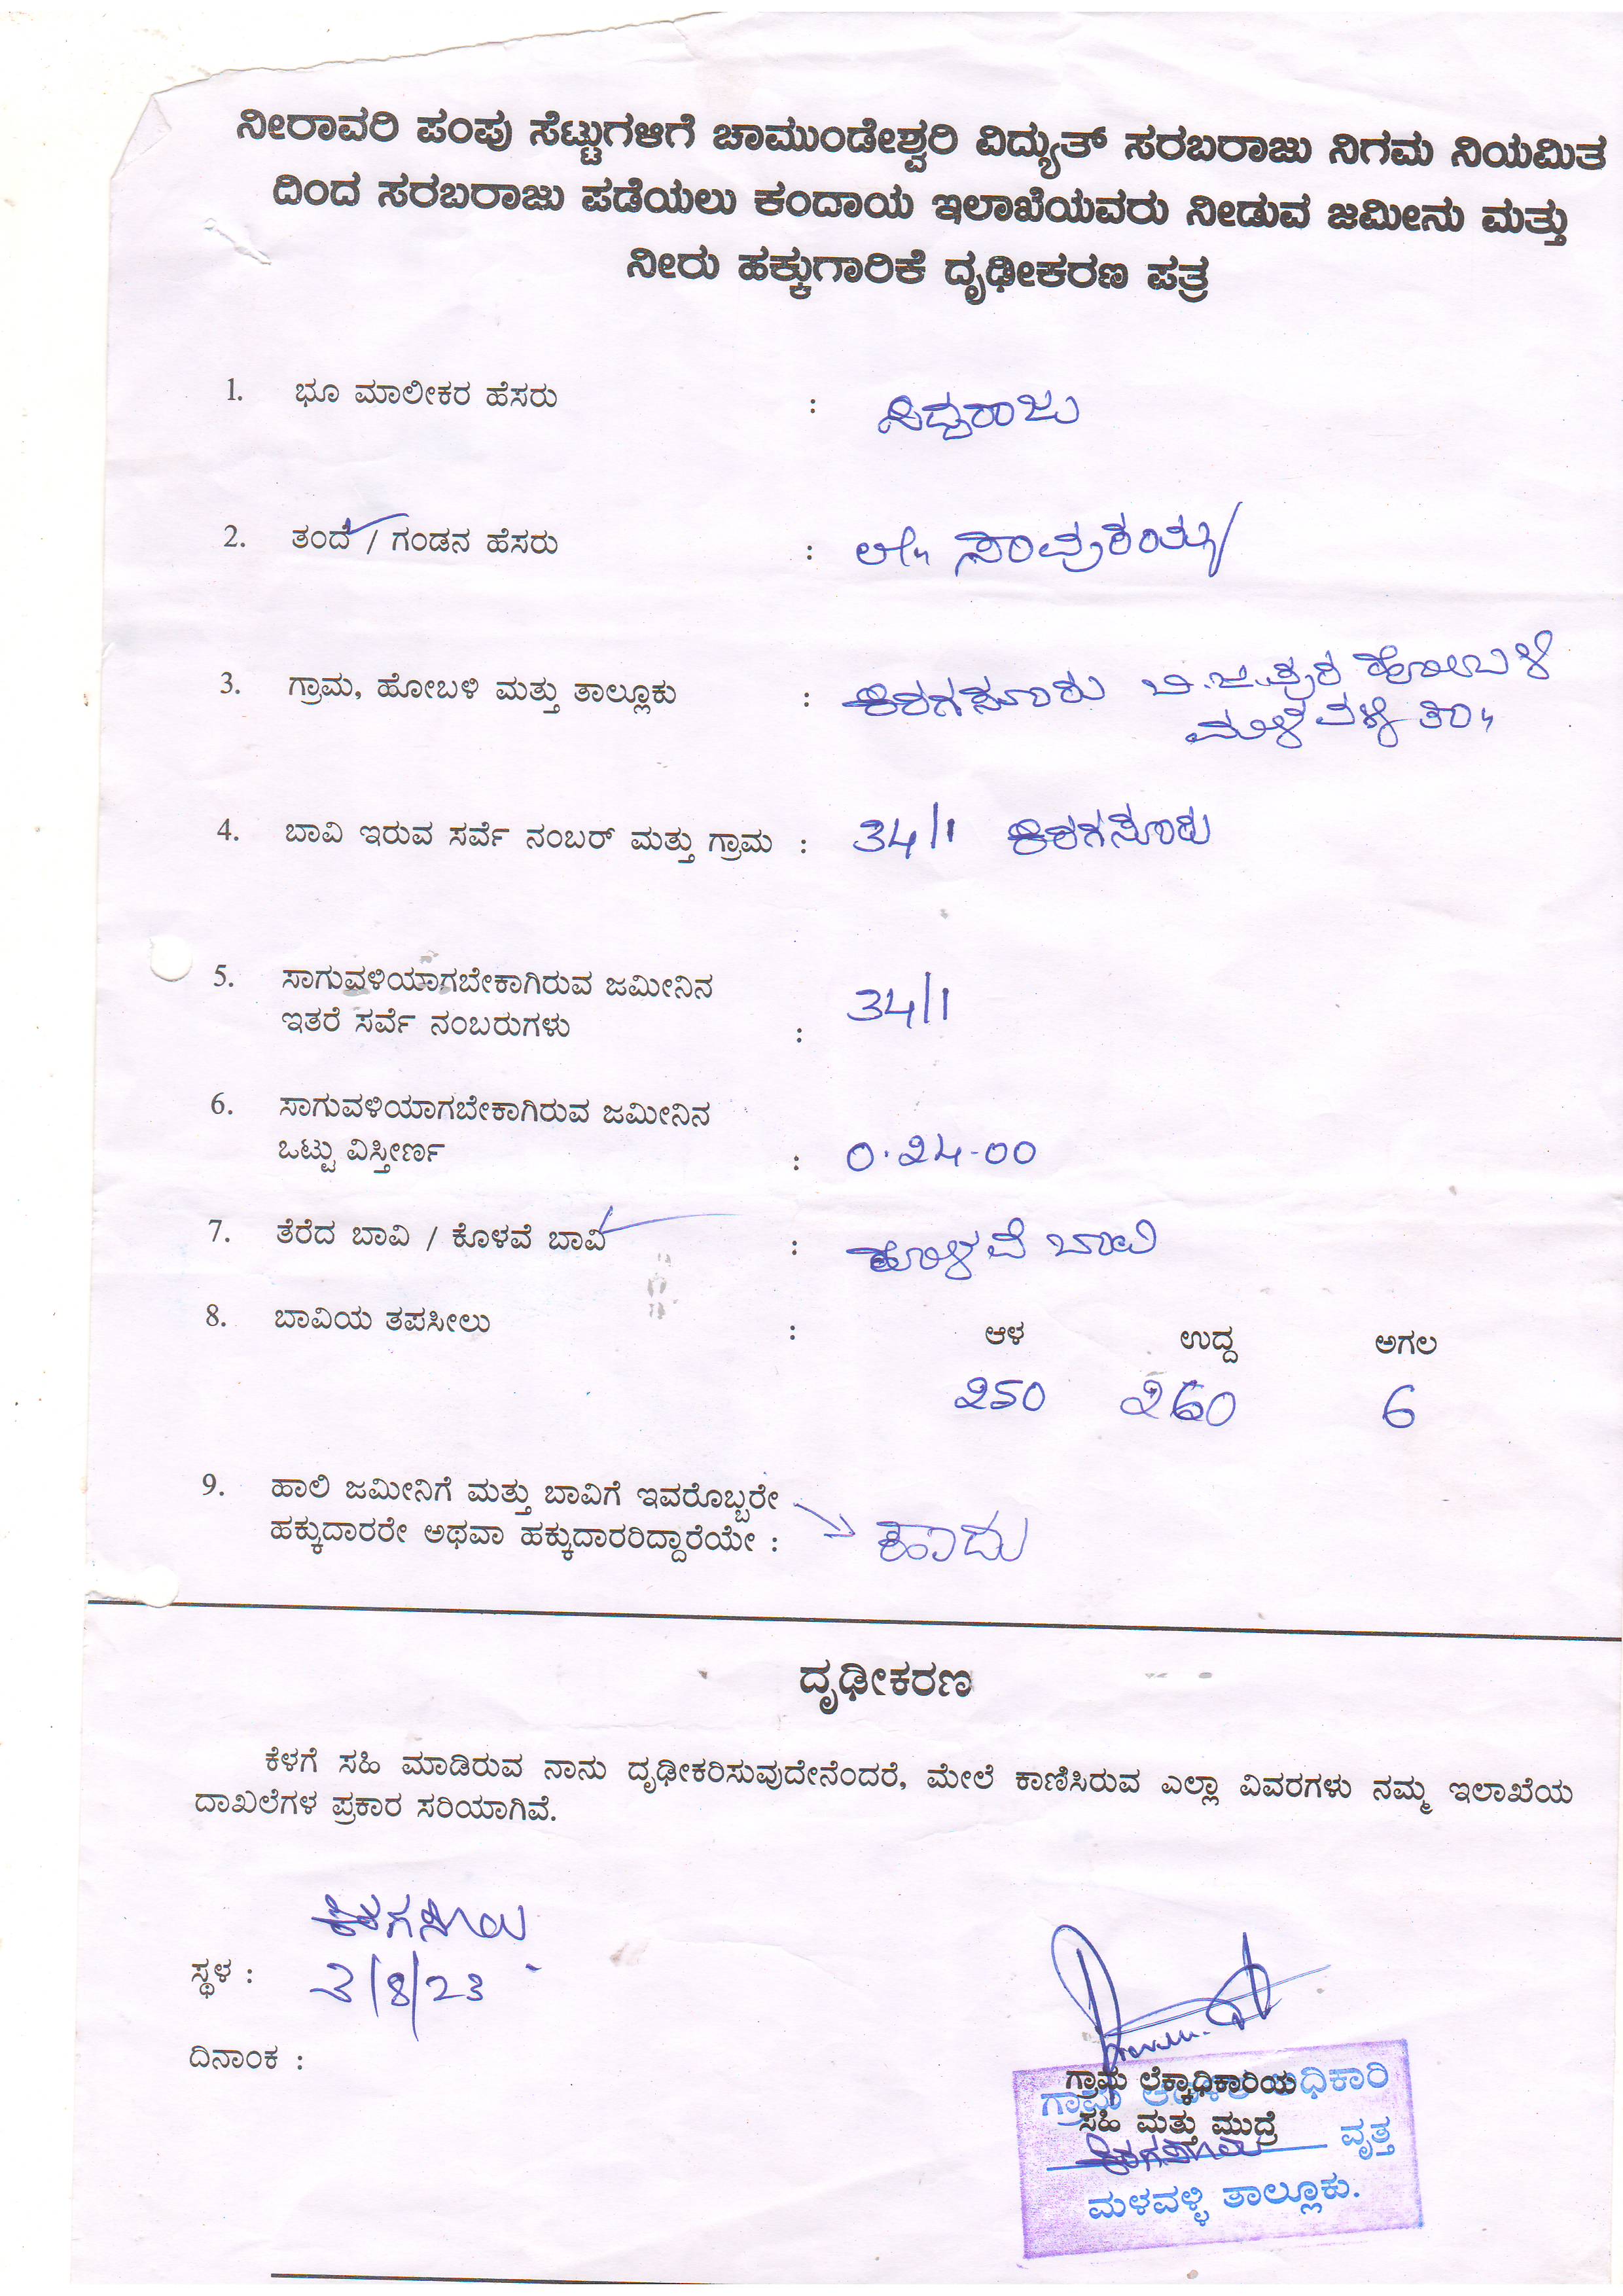 ನೀರಾವರಿ ಪಂಪು ಸೆಟ್ಟುಗಳಿಗೆ ಚಾಮುಂಡೇಶ್ವರಿ ವಿದ್ಯುತ್ ಸರಬರಾಜು ನಿಗಮ ನಿಯಮಿತ
ದಿಂದ ಸರಬರಾಜು ಪಡೆಯಲು ಕಂದಾಯ ಇಲಾಖೆಯವರು ನೀಡುವ ಜಮೀನು ಮತ್ತು
ನೀರು ಹಕ್ಕುಗಾರಿಕೆ ದೃಢೀಕರಣ ಪತ್ರ
1. ಭೂ ಮಾಲೀಕರ ಹೆಸರು : ಸಿದ್ದರಾಜು
2. ತಂದೆ / ಗಂಡನ ಹೆಸರು :
3. ಗ್ರಾಮ, ಹೋಬಳಿ ಮತ್ತು ತಾಲ್ಲೂಕು : ಕಿರಗಸೂರು ಬಿ.ಜಿ.ಪುರ ಹೋಬಳಿ
ಮಳವಳ್ಳಿ ತಾ॥
4. ಬಾವಿ ಇರುವ ಸರ್ವೆ ನಂಬರ್ ಮತ್ತು ಗ್ರಾಮ : 34/1 ಕಿರಗಸೂರು
5. ಸಾಗುವಳಿಯಾಗಬೇಕಾಗಿರುವ ಜಮೀನಿನ
ಇತರೆ ಸರ್ವೆ ನಂಬರುಗಳು : 34/1
6. ಸಾಗುವಳಿಯಾಗಬೇಕಾಗಿರುವ ಜಮೀನಿನ
ಒಟ್ಟು ವಿಸ್ತೀರ್ಣ : 0.24-00
7. ತೆರೆದ ಬಾವಿ / ಕೊಳವೆ ಬಾವಿ : ಕೊಳವೆ ಬಾವಿ
8. ಬಾವಿಯ ತಪಸೀಲು : ಆಳ ಉದ್ದ ಅಗಲ
250 260 6
9. ಹಾಲಿ ಜಮೀನಿಗೆ ಮತ್ತು ಬಾವಿಗೆ ಇವರೊಬ್ಬರೇ
ಹಕ್ಕುದಾರರೇ ಅಥವಾ ಹಕ್ಕುದಾರರಿದ್ದಾರೆಯೇ : ಹೌದು
ದೃಢೀಕರಣ
ಕೆಳಗೆ ಸಹಿ ಮಾಡಿರುವ ನಾನು ದೃಢೀಕರಿಸುವುದೇನೆಂದರೆ, ಮೇಲೆ ಕಾಣಿಸಿರುವ ಎಲ್ಲಾ ವಿವರಗಳು ನಮ್ಮ ಇಲಾಖೆಯ
ದಾಖಲೆಗಳ ಪ್ರಕಾರ ಸರಿಯಾಗಿವೆ.
ಕಿರಗಸೂರು
ಸ್ಥಳ : 3/8/23
ದಿನಾಂಕ :
ಗ್ರಾಮ ಲೆಕ್ಕಾಧಿಕಾರಿಯ
ಸಹಿ ಮತ್ತು ಮುದ್ರೆ
ಗ್ರಾಮ ಆಡಳಿತ ಅಧಿಕಾರಿ
ಕಿರಗಸೂರು ವೃತ್ತ
ಮಳವಳ್ಳಿ ತಾಲ್ಲೂಕು.